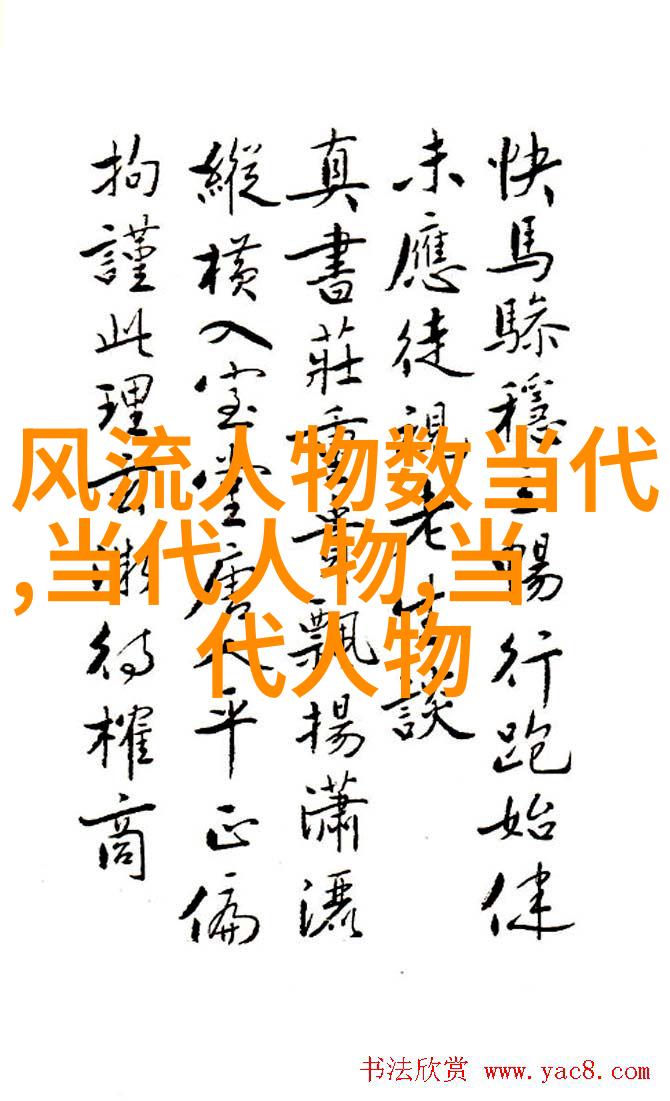 快馬穩行跑始
未應徒老生談
真書莊重貴飄揚瀟灑
縱橫入室平正偏
拘謹此理玄微待榷商
风流人物数当代
,当代人物,当
代人物
书法欣赏 www.yac8.com